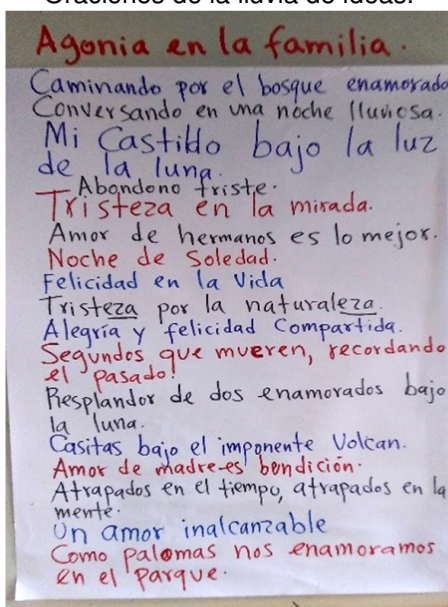 Oraciones de la lluvia de ideas.
Agonia en la familia.
Caminando por el bosque enamorado
Conversando en una noche lluviosa.
Mi Castillo bajo la luz
de la luna.
Abandono triste.
Tristeza en la mirada.
Amor de hermanos es lo mejor.
Noche de Soledad.
Felicidad en la Vida
Tristeza por la naturaleza.
Alegría y felicidad Compartida.
Segundos que mueren, recordando
el pasado!
Resplandor de dos enamorados bajo
la luna.
Casitas bajo el imponente Volcan.
Amor de madre es bendición.
Atrapados en el tiempo, atrapados en la
mente.
Un amor inalcanzable
Como palomas nos enamoramos
en el parque.